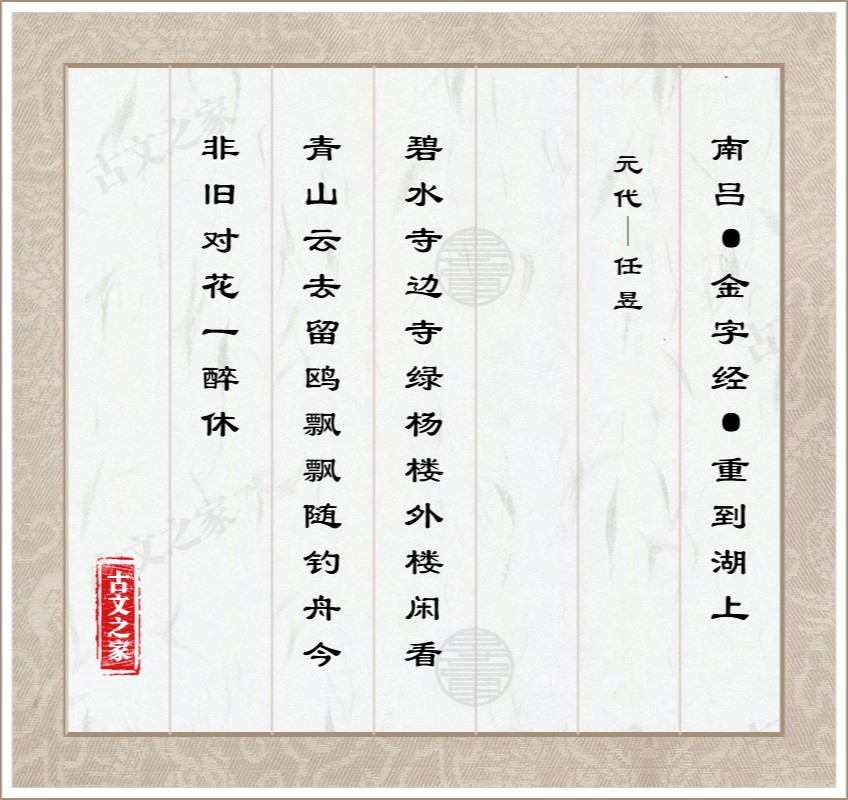 南吕●金字经●重到湖上
元代—任昱
碧水寺边寺绿杨楼外楼闲看
青山云去留鸥飘飘随钓舟今
非旧对花一醉休
古文之家
古文之家
文之家
古